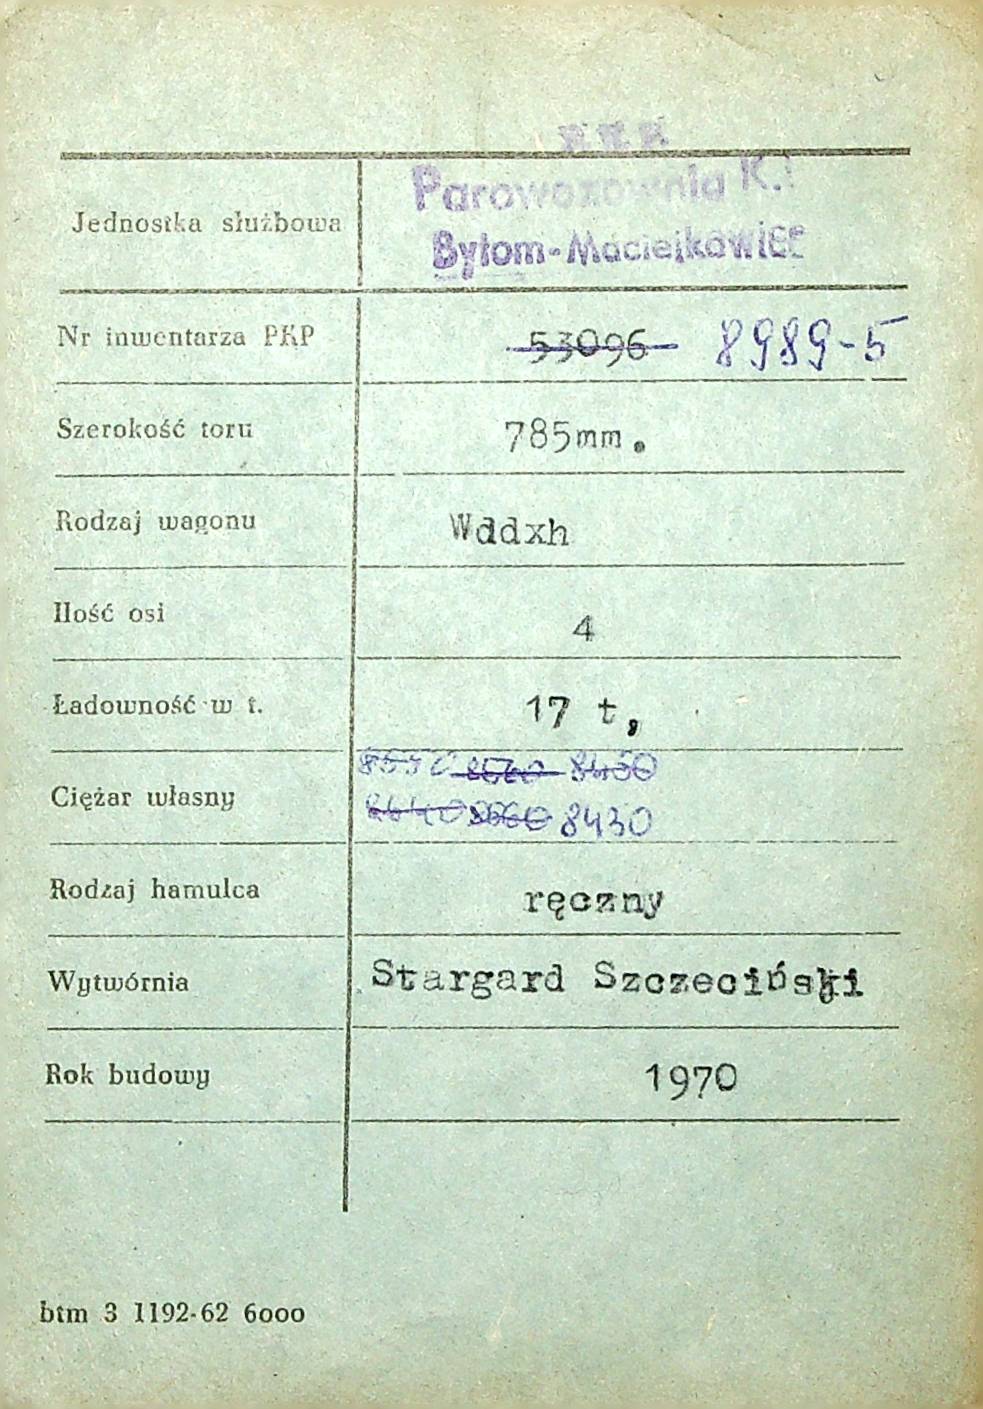 P. K. P.
Parowozownia K.
Jednostka służbowa
Bytom-Maciejkowice
Nr inwentarza PKP 53096 8989-5
Szerokość toru 785mm.
Rodzaj wagonu Wddxh
Ilość osi 4
Ładowność w t. 17 t,
8550 8560 8430
Ciężar własny
8640 8430
Rodzaj hamulca ręczny
Wytwórnia Stargard Szczeciński
Rok budowy 1970
btm 3 1192-62 6000